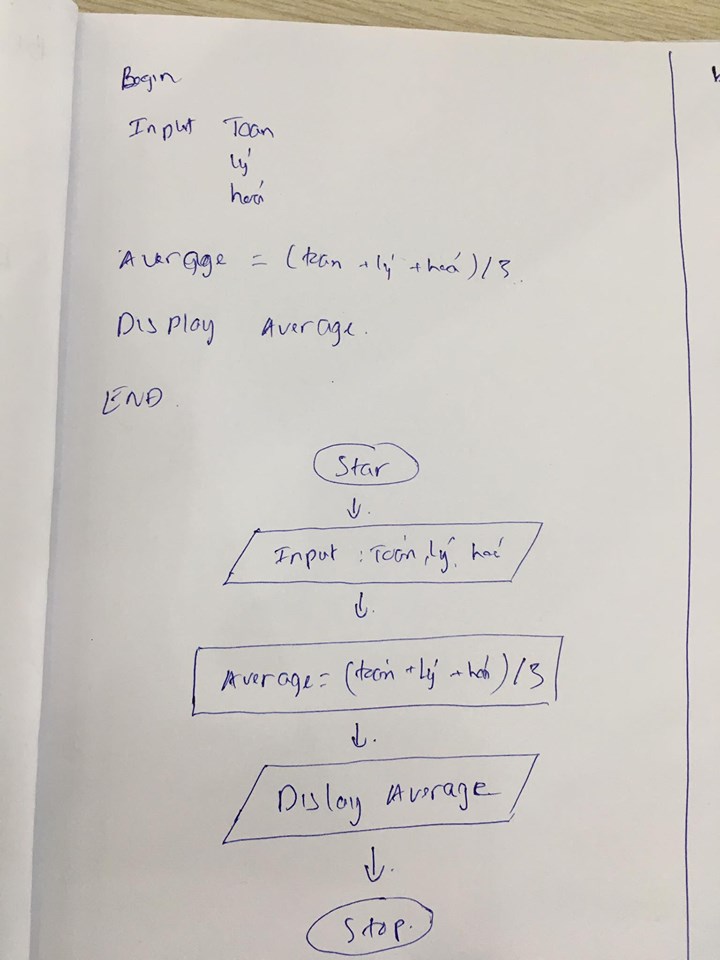 Begin
Input Toan
lý
hoá
Average = (toán + lý + hoá)/3.
Display Average.
END.
Star
Input : Toán, lý, hoá
Average = (toán + lý + hoá)/3
Dislay Average
Stop.